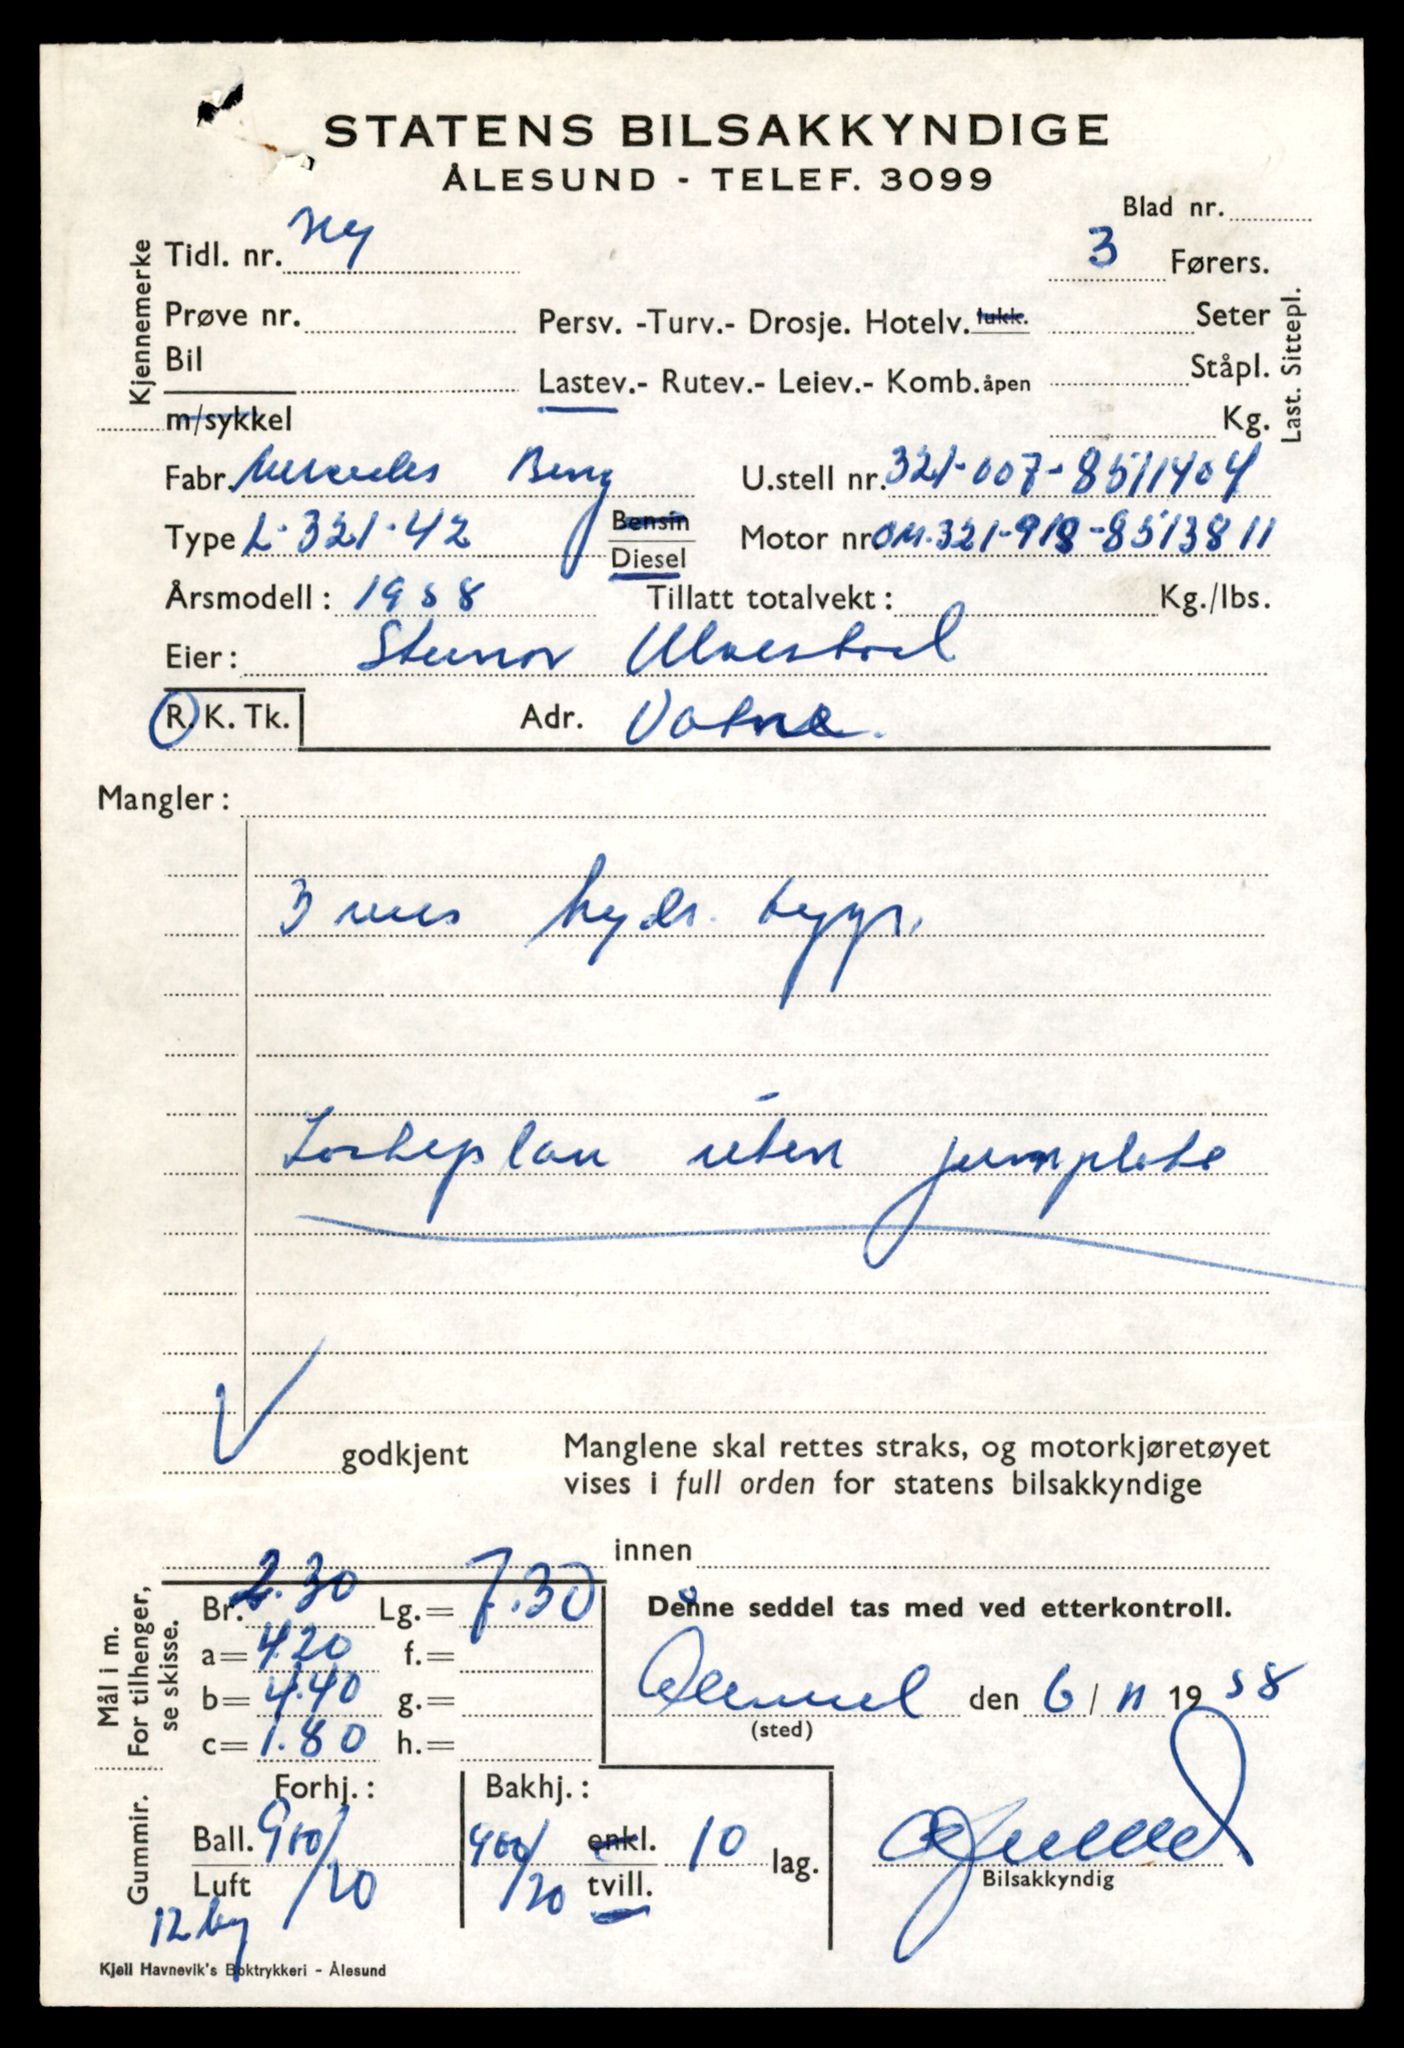 STATENS BILSAKKYNDIGE
ÅLESUND - TELEF. 3099
Blad nr.
Kjennemerke
Tidl. nr. Ny
3 Førers.
Prøve nr.
Persv. -Turv.- Drosje. Hotelv. lukk.
Seter
Bil
Lastev.- Rutev.- Leiev.- Komb. åpen
Ståpl.
m/sykkel
Kg.
Last. Sittepl.
Fabr. Mercedes Benz
U.stell nr. 321-007-8511404
Type L-321-42
Bensin
Diesel
Motor nr OM.321-918-8513811
Årsmodell: 1958
Tillatt totalvekt: Kg./lbs.
Eier: Steinar Ulvestad
R. K. Tk.
Adr. Vatne.
Mangler:
3 veis hydr. tipp.
Lasteplan uten
godkjent
Manglene skal rettes straks, og motorkjøretøyet
vises i full orden for statens bilsakkyndige
innen
Mål i m.
For tilhenger,
se skisse.
Br. 2.30 Lg.= 7.30
a= 4.20 f.=
b= 4.40 g.=
c= 1.80 h.=
Denne seddel tas med ved etterkontroll.
Ålesund den 6/11 1958
(sted)
Gummir.
Forhj.:
Bakhj.:
Ball. 900/20
900/20 enkl. 10 lag.
Luft
tvill.
12
Bilsakkyndig
Kjell Havnevik's Boktrykkeri - Ålesund